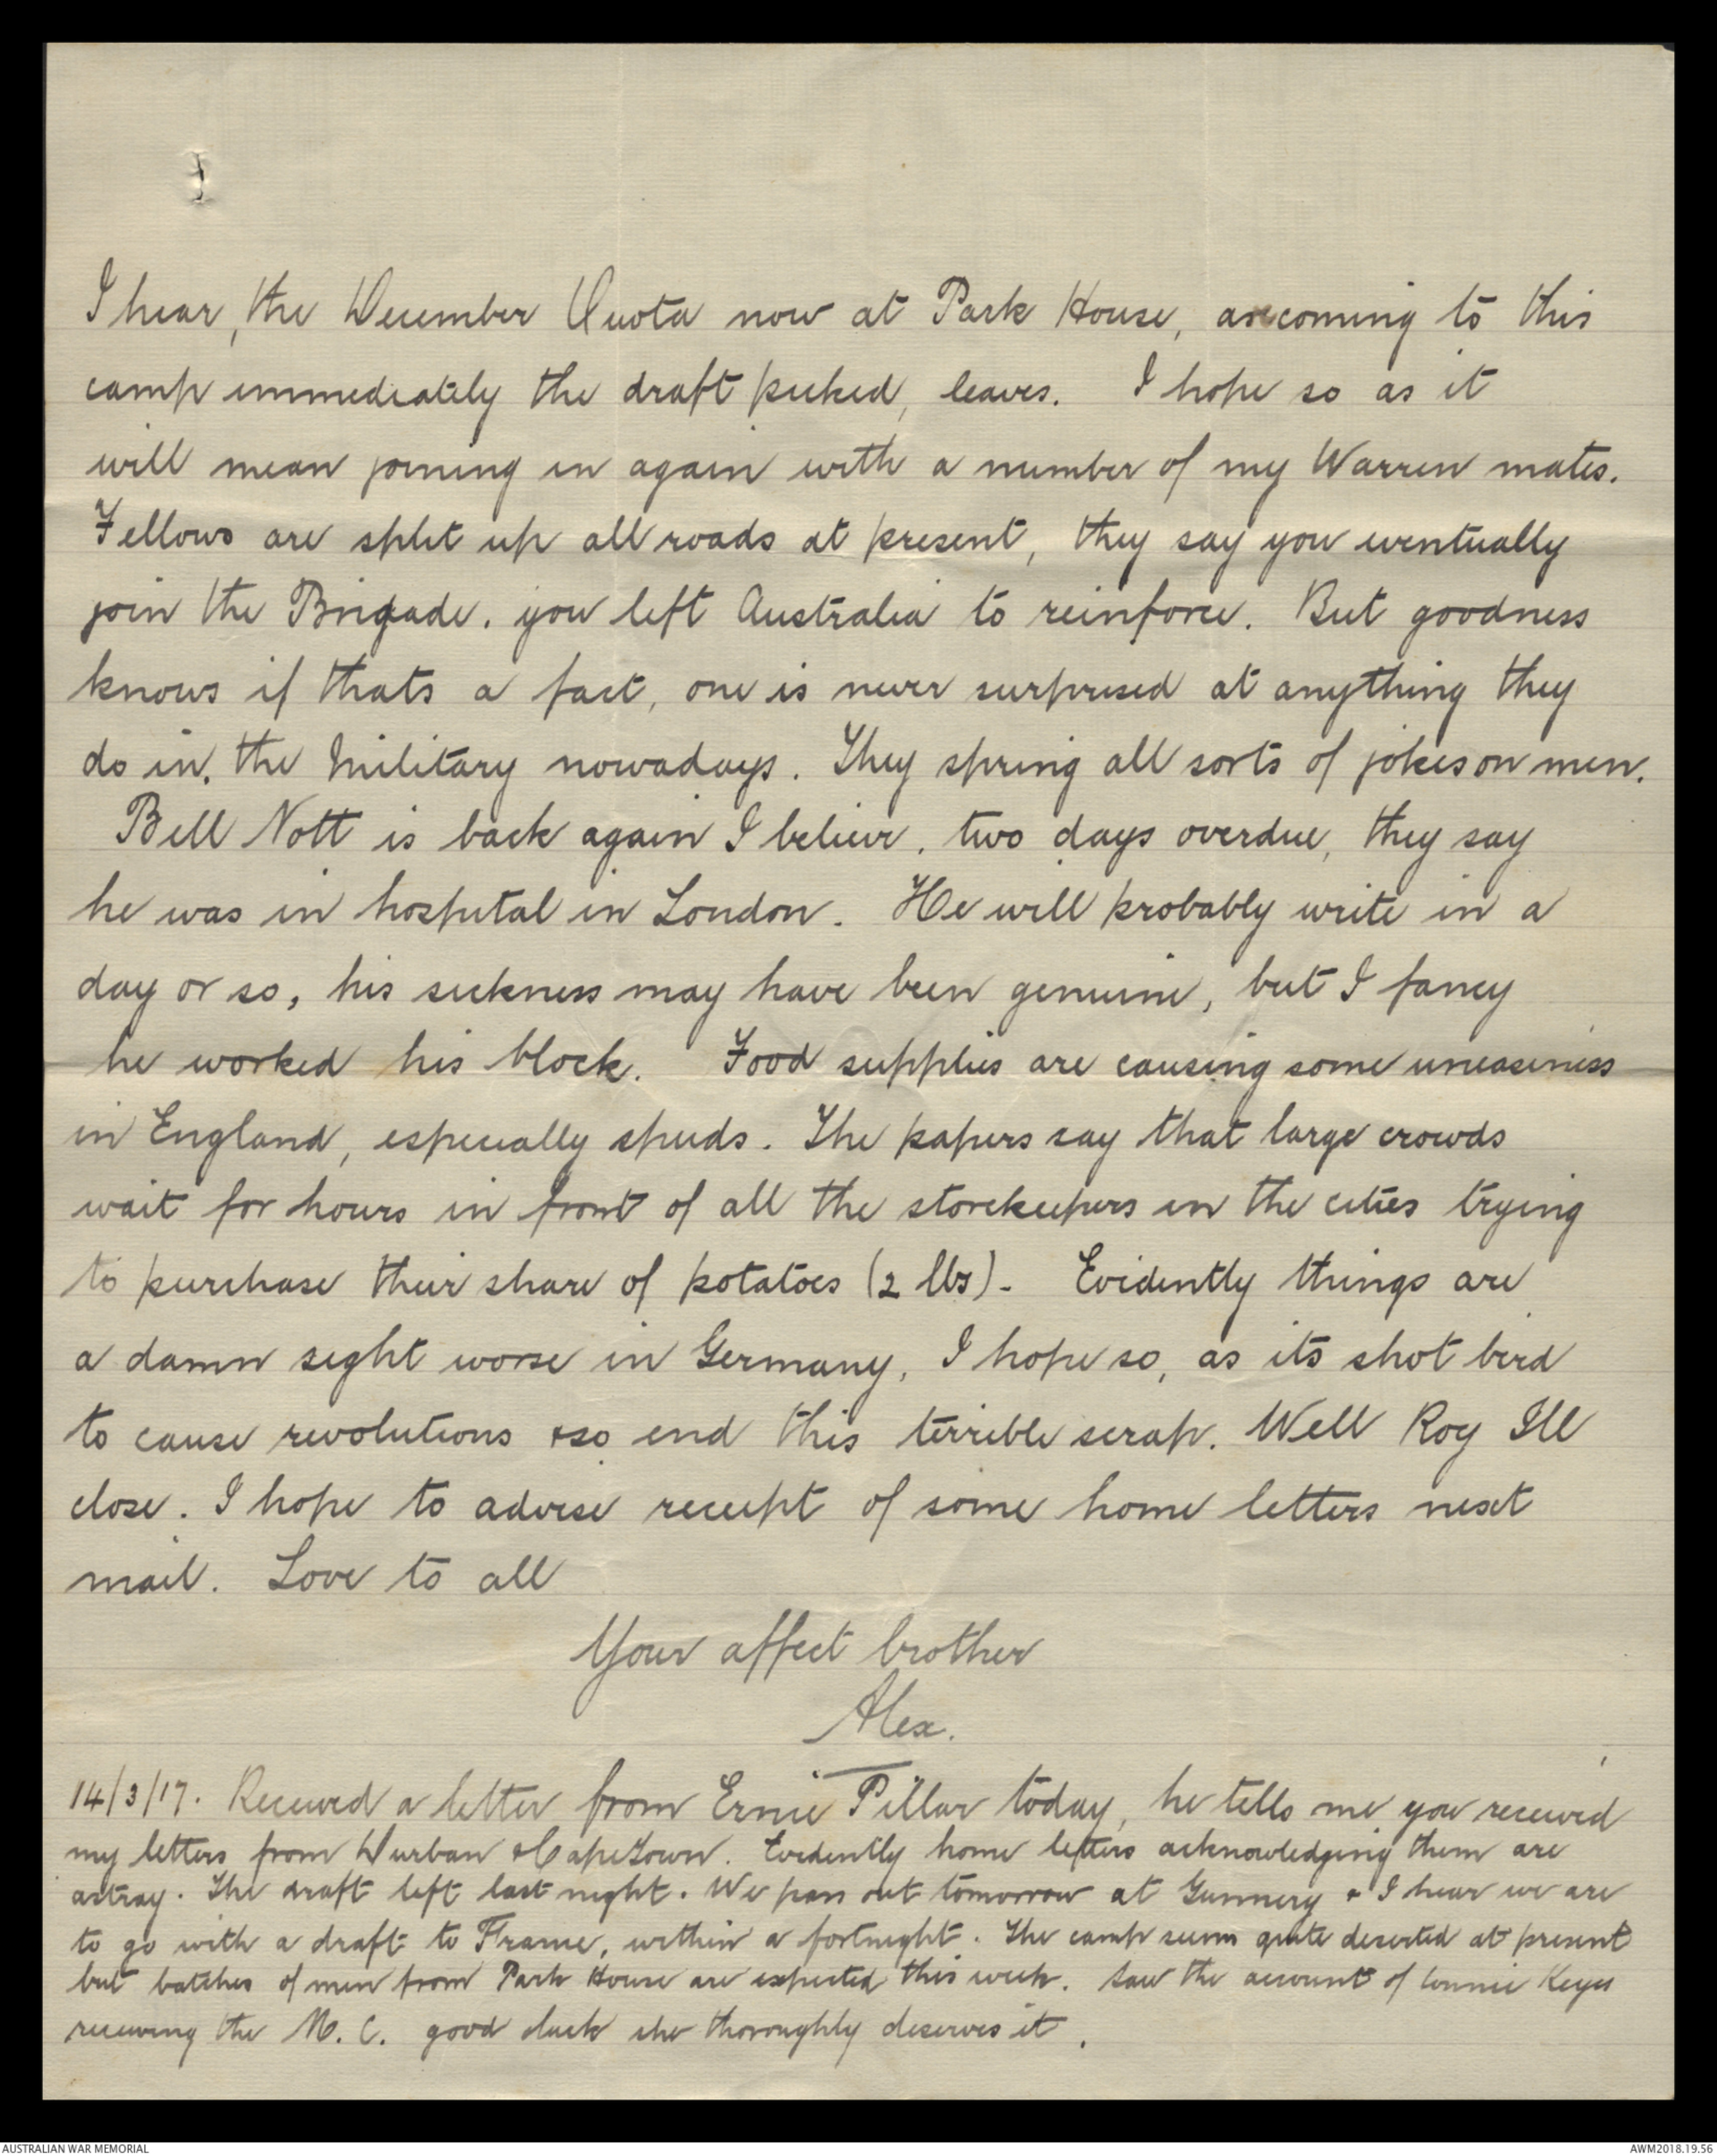 I hear, the December Quota now at Park House, are coming to this
camp immediately the draft picked, leaves. I hope so as it
will mean joining in again with a number of my Warren mates.
Fellows are split up all roads at present, they say you eventually
join the Brigade, you left Australia to reinforce. But goodness
knows if thats a fact, one is never surprised at anything they
do in, the Military nowadays. They spring all sorts of jokes on men.
Bill Nott is back again I believe, two days overdue, they say
he was in hospital in London. He will probably write in a
day or so, his sickness may have been genuine, but I fancy
he worked his block. Food supplies are causing some uneasiness
in England, especially spuds. The papers say that large crowds
wait for hours in front of all the storekeepers in the cities trying
to purchase their share of potatoes (2 lbs). Evidently things are
a damn sight worse in Germany, I hope so, as its shot bird
to cause revolutions & so end this terrible scrap. Well Roy Ill
close. I hope to advise receipt of some home letters next
mail. Love to all
Your affect brother
Alex.
14/3/17. Received a letter from Ernie Pillar today, he tells me you received
my letters from Durban & CapeTown. Evidently home letters acknowledging them are
astray. The draft left last night. We pass out tomorrow at Gunnery & I hear we are
to go with a draft to France, within a fortnight. The camp seems quite deserted at present
but batches of men from Park House are expected this week. Saw the account of Connie Keys
receiving the M. C. good luck she thoroughly deserves it.
AUSTRALIAN WAR MEMORIAL
AWM2018.19.56